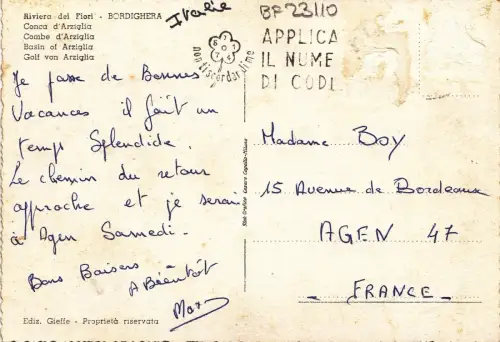 Riviera dei Fiori - BORDIGHERA
Conca d'Arziglia
Combe d'Arziglia
Basin of Arziglia
Golf von Arziglia
Italie
BF23110
nontiscordardime
APPLICA
IL NUME
DI CODI
Je passe de Bonnes
Vacances il fait un
temps Splendide.
Le chemin du retour
approche et je serai
à Agen Samedi.
Bons Baisers
A Bientôt
Madame BOY
15 Avenue de Bordeaux
AGEN 47
- FRANCE -
Ediz. Gieffe - Proprietà riservata